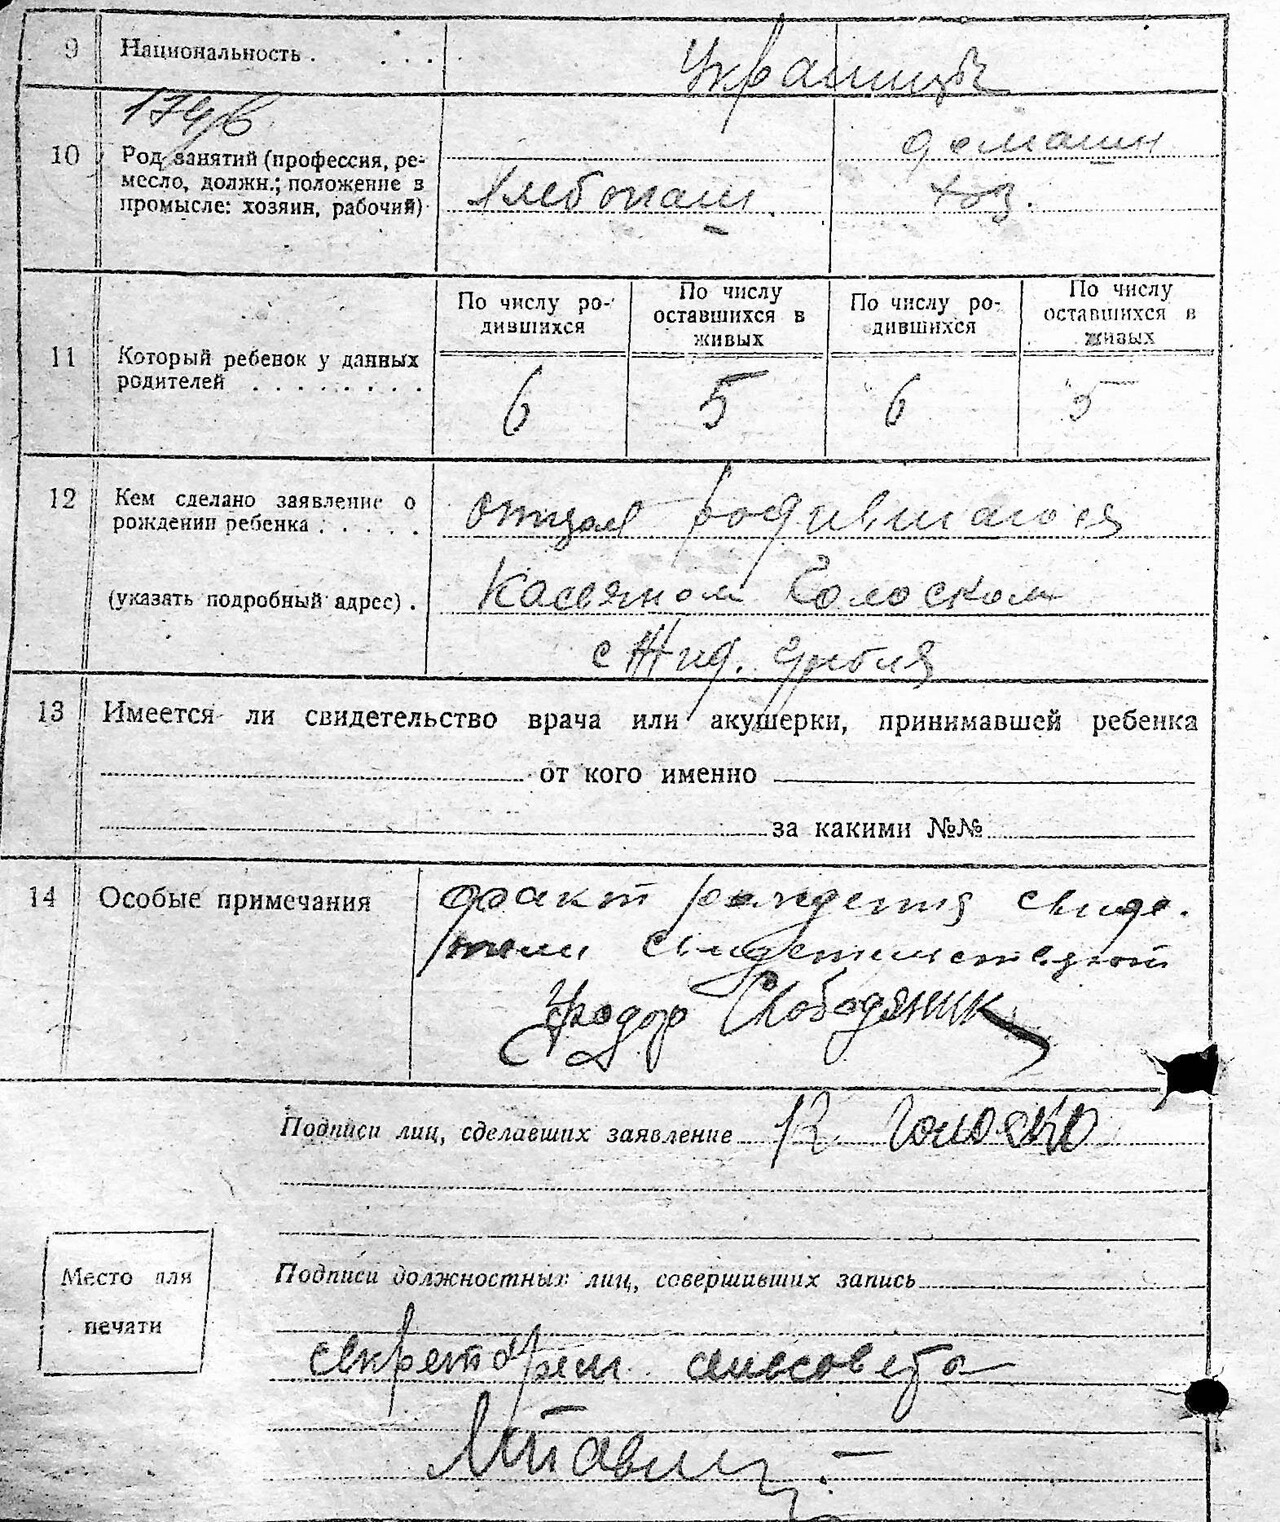 9 Национальность . . . .
Украинцы
10 Род занятий (профессия, ре-
месло, должн.; положение в
промысле: хозяин, рабочий)
Хлебопаш.
домашн
хоз.
11 Который ребенок у данных
родителей . . . . . . . .
По числу ро-
дившихся
По числу
оставшихся в
живых
По числу ро-
дившихся
По числу
оставшихся в
живых
6 5 6 5
12 Кем сделано заявление о
рождении ребенка . . . . .
(указать подробный адрес) .
отцом родившагося
Касьяном Голоском
с Жид.
13 Имеется ли свидетельство врача или акушерки, принимавшей ребенка
от кого именно
за какими №№
14 Особые примечания
факт рождения свиде-
тели свидетельствуют
Слободяник
Подписи лиц, сделавших заявление К Голоско
Место для
печати
Подписи должностных лиц, совершивших запись
секретарем сельсовета